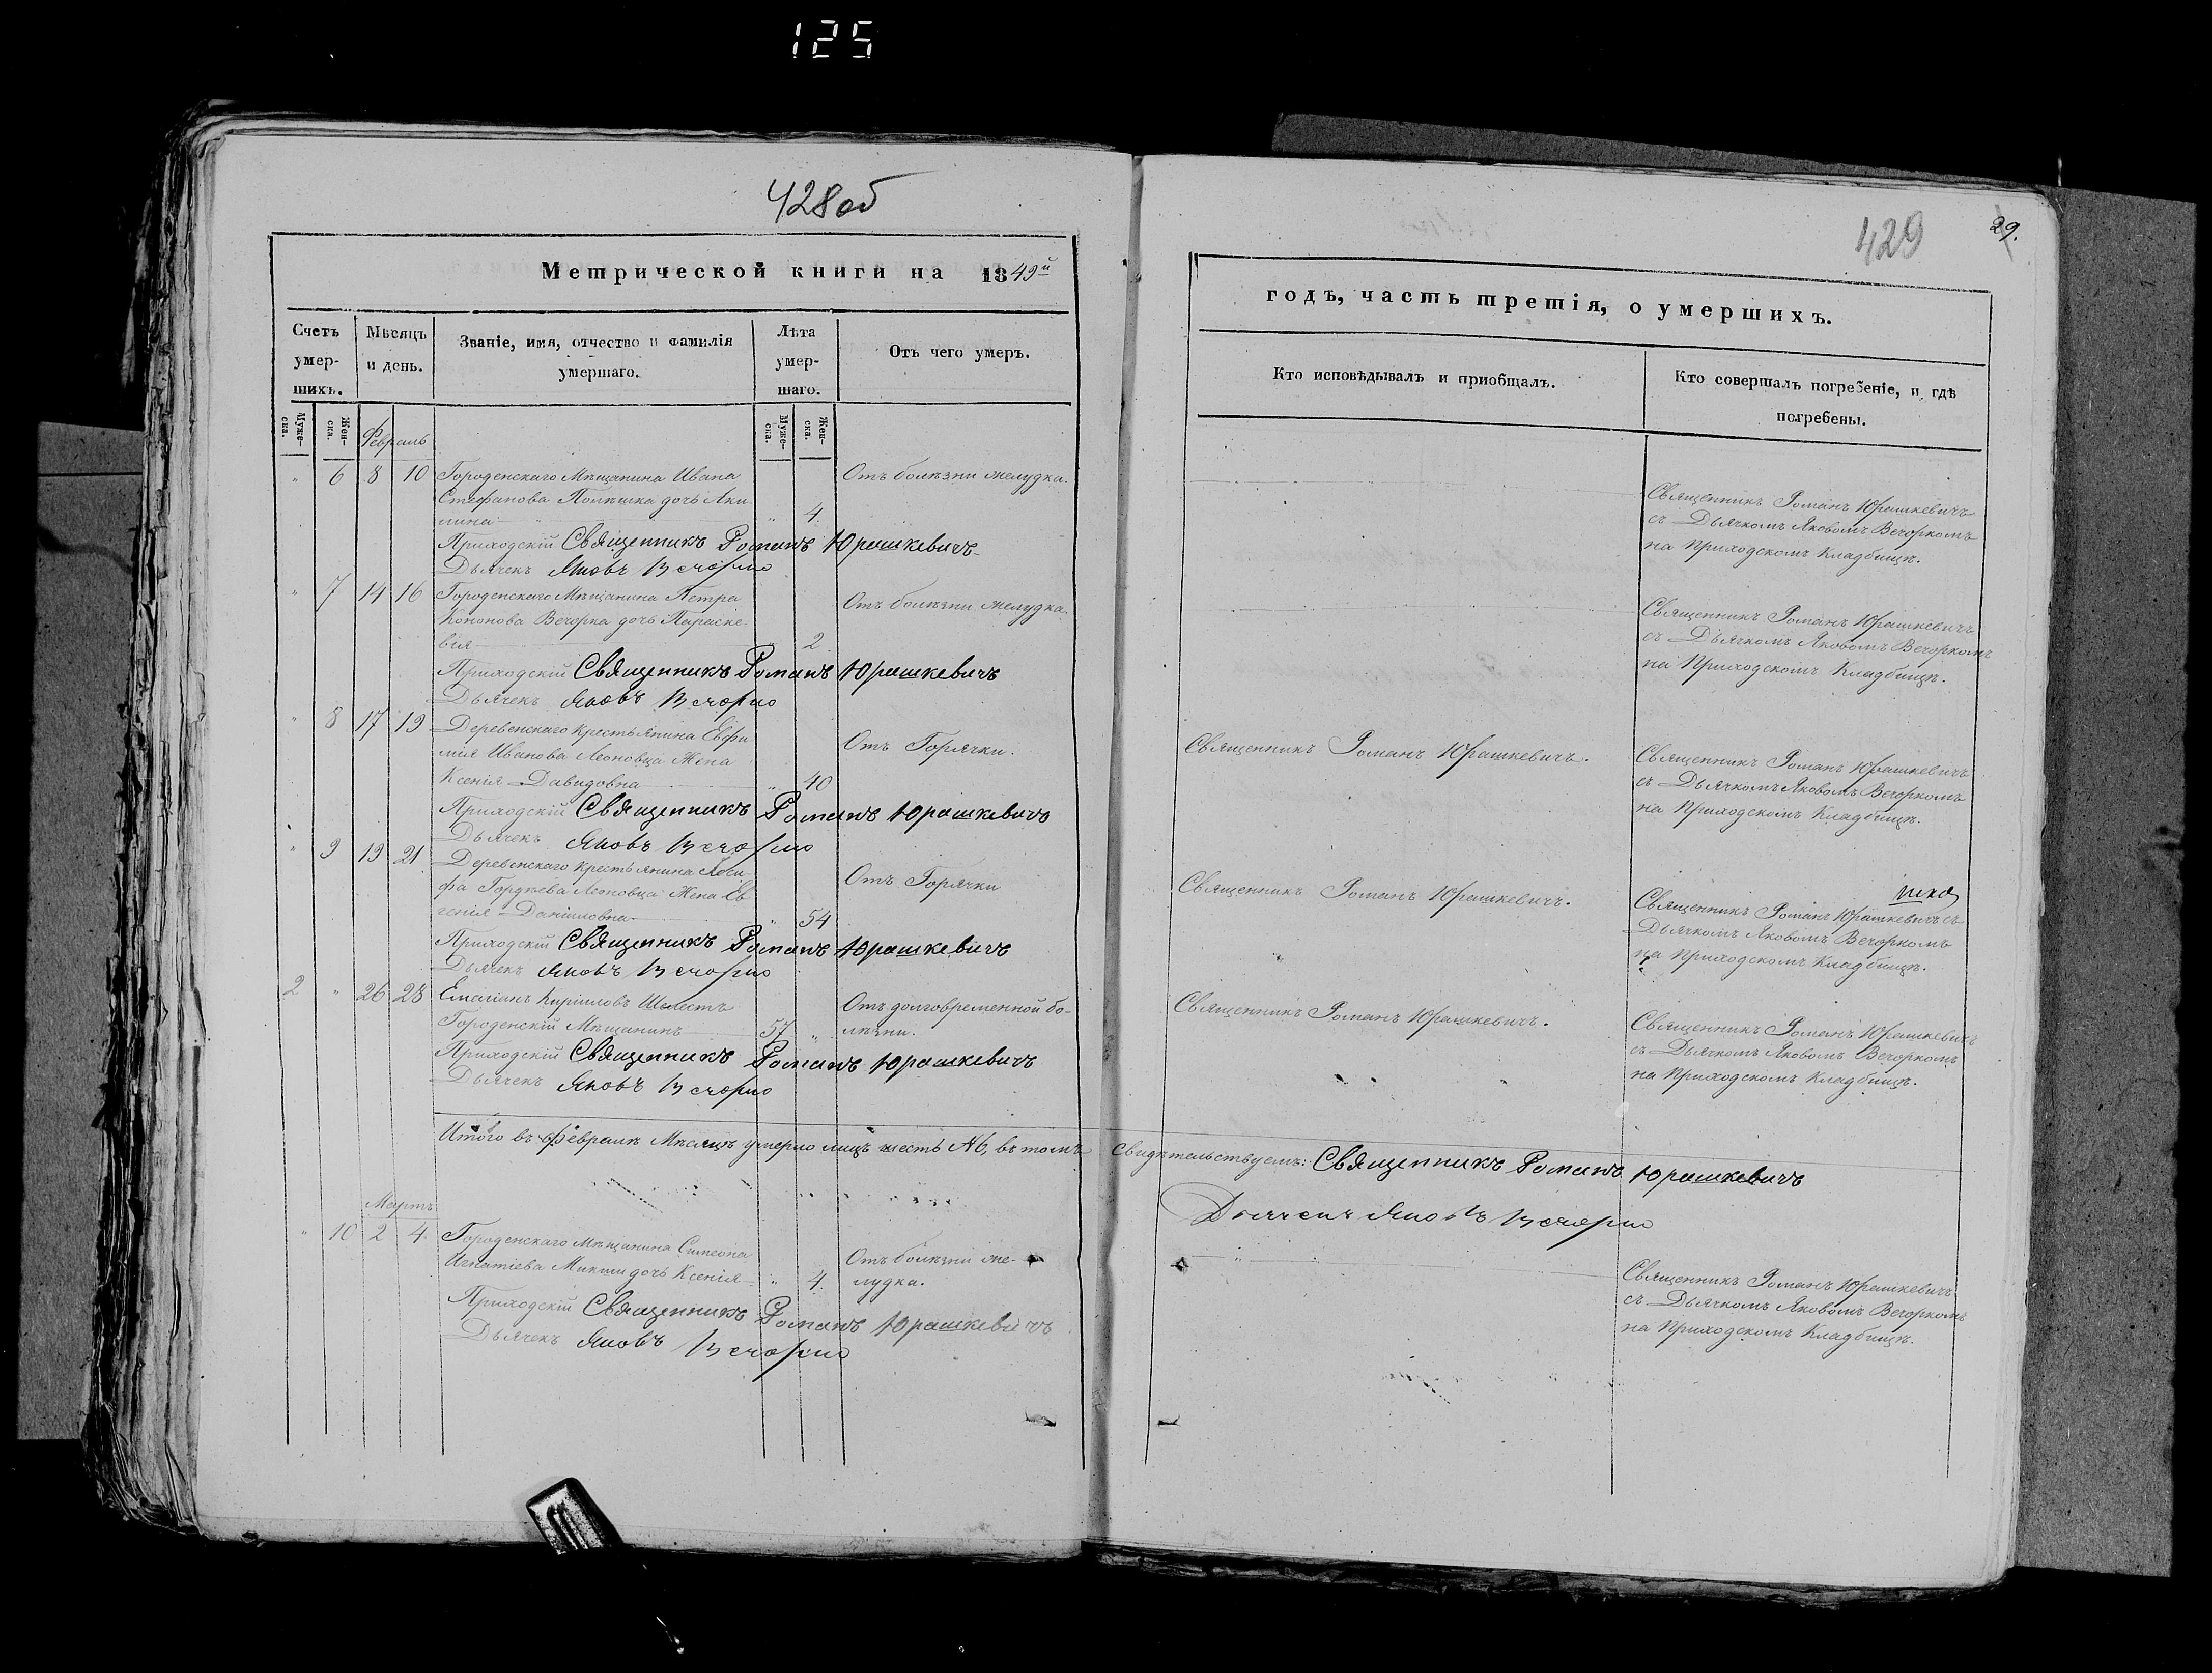 125
428об
Метрической книги на 1849й
Счетъ умер-шихъ.
Мѣсяцъ и день.
Званіе, имя, отчество и фамилія умершаго.
Лѣта умер-шаго.
Отъ чего умеръ.
Муже-ска.
Жен-ска.
Муже-ска.
Жен-ска.
Февраль
" 6 8 10 Городенскаго Мѣщанина Ивана
Стефанова Полѣшка дочь Аки
лина " 4.
Отъ болѣзни желудка.
Приходскій Священникъ Романъ Юрашкевичъ
Дьячекъ Яковъ Вечорко
" 7 14 16 Городенскаго Мѣщанина Петра
Кононова Вечорка дочь Параске
вія " 2
Отъ болѣзни желудка.
Приходскій Священникъ Романъ Юрашкевичъ
Дьячекъ Яковъ Вечорко
" 8 17 19 Деревенскаго Крестьянина Евфи
мія Иванова Леоновца Жена
Ксенія Давидовна " 40
Отъ Горячки.
Приходскій Священникъ Романъ Юрашкевичъ
Дьячекъ Яковъ Вечорко
" 9 19 21 Деревенскаго Крестьянина
фа Гордѣева Леоновца Жена Ев
генія Даніиловна " 54
Отъ Горячки
Приходскій Священникъ Романъ Юрашкевичъ
Дьячекъ Яковъ Вечорко
2 " 26 28 Емеліанъ Кирилловъ Шелестъ
Городенскій Мѣщанинъ 57 "
Отъ долговременной бо-
лѣзни.
Приходскій Священникъ Романъ Юрашкевичъ
Дьячекъ Яковъ Вечорко
Итого въ Февралѣ Мѣсяцѣ умерло лицъ шесть №6, въ томъ
Мартъ
" 10 2 4 Городенскаго Мѣщанина Симеона
Игнатіева Микши дочь Ксенія " 4.
Отъ болѣзни же-
лудка.
Приходскій Священникъ Романъ Юрашкевичъ
Дьячекъ Яковъ Вечорко
429
29.
годъ, часть третія, о умершихъ.
Кто исповѣдывалъ и пріобщалъ.
Кто совершалъ погребеніе, и гдѣ
погребены.
Священникъ Романъ Юрашкевичъ
съ Дьячкомъ Яковомъ Вечоркомъ
на Приходскомъ Кладбищѣ.
Священникъ Романъ Юрашкевичъ
съ Дьячкомъ Яковомъ Вечоркомъ
на Приходскомъ Кладбищѣ.
Священникъ Романъ Юрашкевичъ.
Священникъ Романъ Юрашкевичъ
съ Дьячкомъ Яковомъ Вечоркомъ
на Приходскомъ Кладбищѣ.
Священникъ Романъ Юрашкевичъ.
Священникъ Романъ Юрашкевичъ съ
Дьячкомъ Яковомъ Вечоркомъ
на Приходскомъ Кладбищѣ.
Священникъ Романъ Юрашкевичъ.
Священникъ Романъ Юрашкевичъ
съ Дьячкомъ Яковомъ Вечоркомъ
на Приходскомъ Кладбищѣ.
Свидѣтельствуемъ: Священникъ Романъ Юрашкевичъ
Дьячекъ Яковъ Вечорко
Священникъ Романъ Юрашкевичъ
съ Дьячкомъ Яковомъ Вечоркомъ
на Приходскомъ Кладбищѣ.